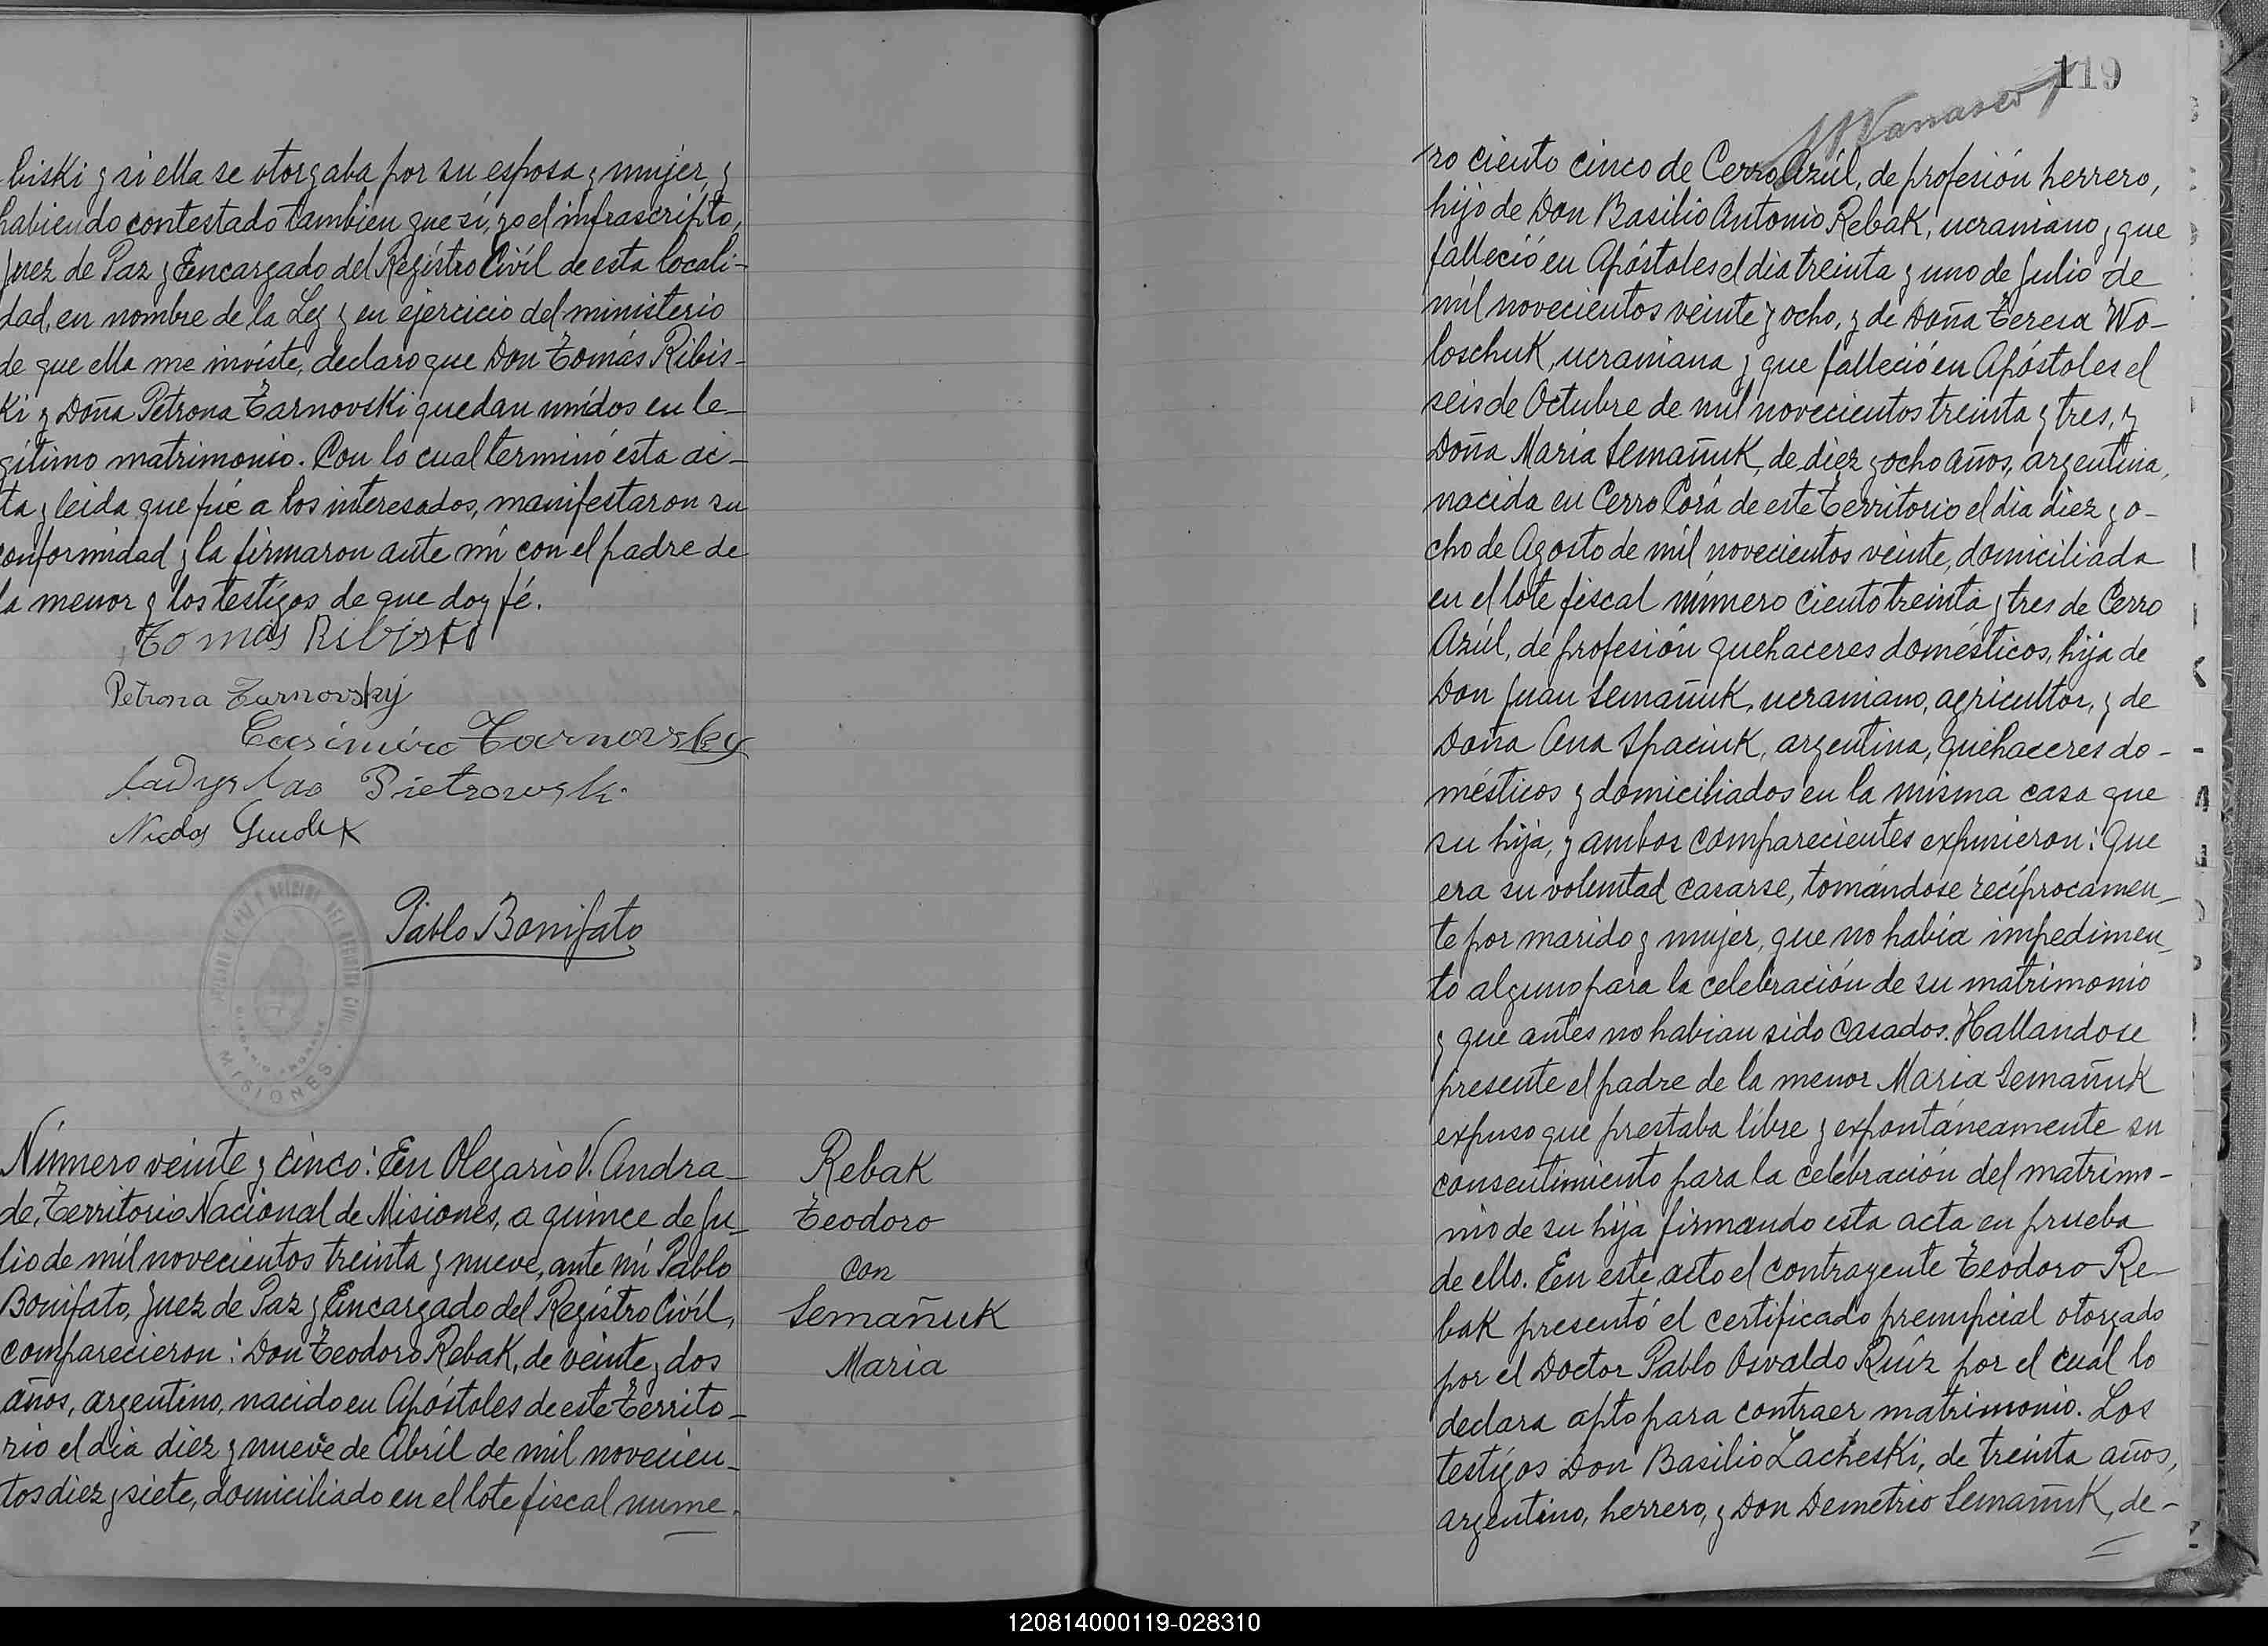 biski y si ella se otorgaba por su esposa y mujer, y
habiendo contestado tambien que sí, yo el infrascripto,
Juez de Paz y Encargado del Registro Civíl de esta locali-
dad, en nombre de la Ley y en ejercicio del ministerio
de que ella me inviste, declaro que Don Tomás Ribis-
ki y Doña Petrona Tarnovski quedan unídos en le-
gítimo matrimonio. Con lo cual terminó esta ac-
ta y leida que fué a los interesados, manifestaron su
conformidad y la firmaron ante mí con el padre de
la menor y los testigos de que doy fé.
Tomas Ribiski
Petrona Tarnovsky
Casimiro Tarnovsky
Ladyslao Pietrowski
Pablo Bonifato
MISIONES
Número veinte y cinco: En Olegario V. Andra-
de, Territorio Nacional de Misiones, a quince de Ju-
lio de mil novecientos treinta y nueve, ante mí Pablo
Bonifato, Juez de Paz y Encargado del Registro Civíl,
comparecieron: Don Teodoro Rebak, de veinte y dos
años, argentino, nacido en Apóstoles de este Territo-
rio el dia diez y nueve de Abril de mil novecien-
tos diez y siete, domiciliado en el lote fiscal nume-
Rebak
Teodoro
con
Semañuk
Maria
119
ro ciento cinco de Cerro Azúl, de profesión herrero,
hijo de Don Basilio Antonio Rebak, ucraniano y que
falleció en Apóstoles el dia treinta y uno de Julio de
mil novecientos veinte y ocho, y de Doña Teresa Wo-
loschuk, ucraniana y que falleció en Apóstoles el
seis de Octubre de mil novecientos treinta y tres, y
Doña Maria Semañuk, de diez y ocho años, argentina,
nacida en Cerro Corá de este Territorio el dia diez y o-
cho de Agosto de mil novecientos veinte, domiciliada
en el lote fiscal número ciento treinta y tres de Cerro
Azúl, de profesión quehaceres domésticos, hija de
Don Juan Semañuk, ucraniano, agricultor, y de
Doña Ana Spaciuk, argentina, quehaceres do-
mésticos y domiciliados en la misma casa que
su hija, y ambos comparecientes expusieron: Que
era su voluntad casarse, tomándose recíprocamen-
te por marido y mujer, que no había impedimen-
to alguno para la celebración de su matrimonio
y que antes no habian sido casados. Hallandose
presente el padre de la menor Maria Semañuk
expuso que prestaba líbre y espontáneamente su
consentimiento para la celebración del matrimo-
nio de su hija firmando esta acta en prueba
de ello. En este acto el contrayente Teodoro Re-
bak presentó el certificado prenupcial otorgado
por el Doctor Pablo Osvaldo Ruíz por el cual lo
declara apto para contraer matrimonio. Los
testigos Don Basilio Lacheski, de treinta años,
argentino, herrero, y Don Demetrio Semañuk, de-
120814000119-028310